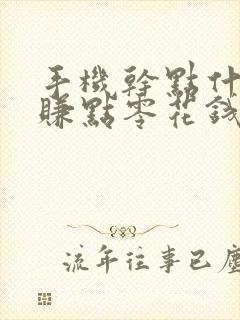 手機幹點什
賺點零花錢
流年往事已塵